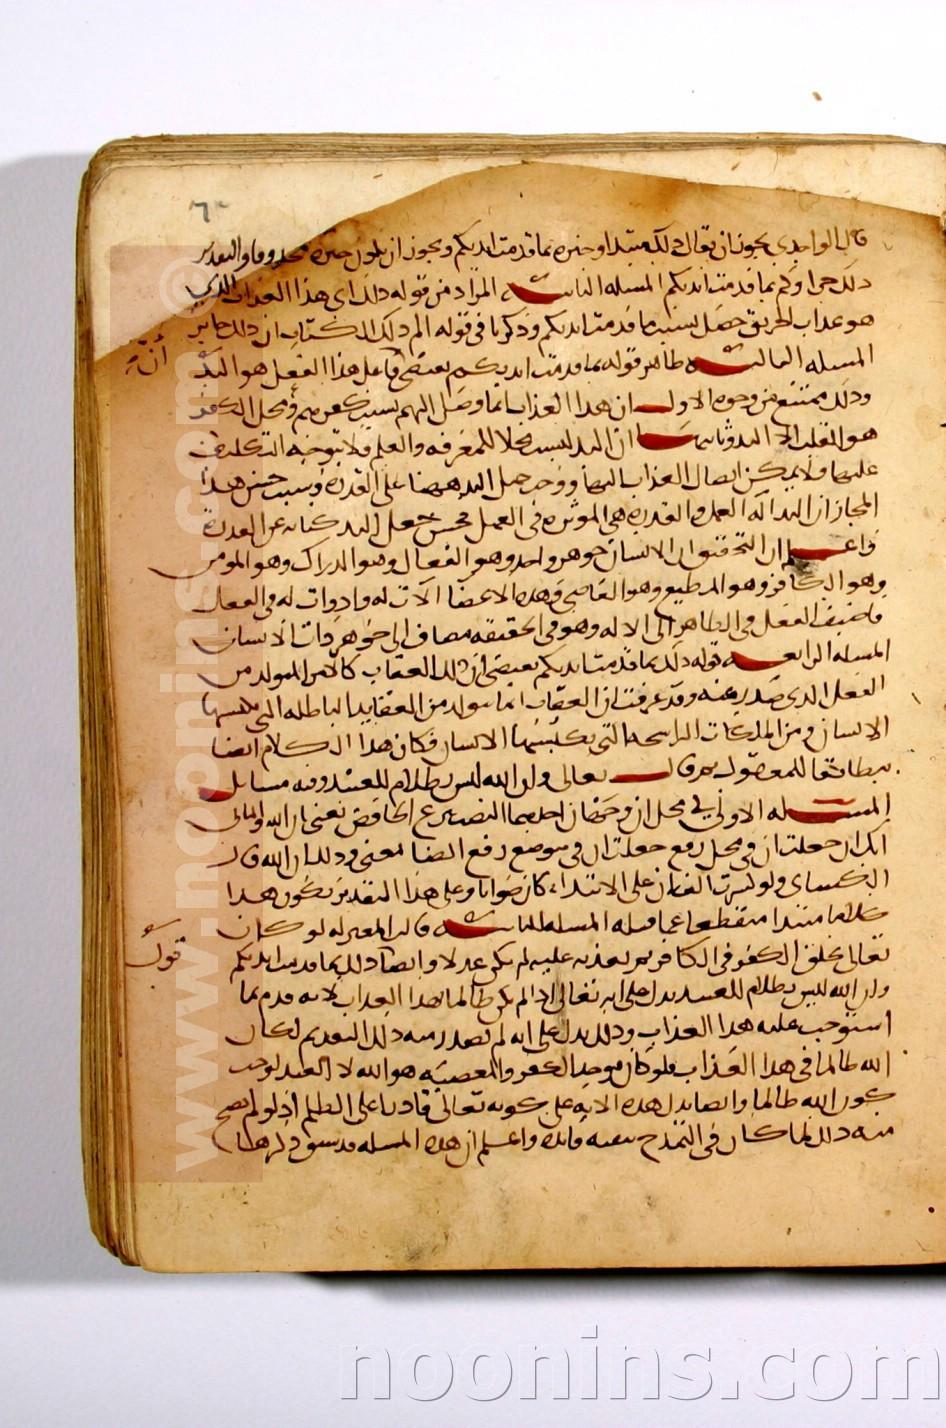 قال الواحدي يجوز ان يقال ذلك مبتدا وخبره بما قدمت ايديكم ويجوز ان يكون خبره محذوفا والتقدير
ذلك جزاوكم بما قدمت ايديكم المسله الثانيه المراد من قوله ذلك اى هذا العذاب الذي
هو عذاب الحريق حصل بسبب ما قدمت ايديكم وذكرنا في قوله الم ذلك الكتاب ان ذلك
المسله الثالثه ظاهر قوله بما قدمت ايديكم يقتضي فاعل هذا الفعل هو اليد
وذلك ممتنع من وجوه الاول ان هذا العذاب انما وصل اليهم بسبب كفرهم ومحل الكفر
هو القلب لا اليد وثانيها ان اليد ليست محلا للمعرفه والعلم فلا يتوجه التكليف
عليها ولا يمكن ايصال العذاب اليها ووجب حمل اليد ههنا على القدرة وسبب حسن هذا
المجاز ان اليد آلة العمل والقدرة هي الموثره في العمل فحسن جعل اليد كناية عن القدرة
واعلم ان التحقيق ان الانسان جوهر واحد وهو الفعال وهو الدراك وهو المومن
وهو الكافر وهو المطيع وهو العاصي وهذه الاعضا آلات له وادوات له في الفعل
فاضيف الفعل في الظاهر الى الاله وهو في الحقيقه مضاف الى جوهر ذات الانسان
المسله الرابعه قوله ذلك بما قدمت ايديكم يقتضي ان ذلك العقاب كالامر المتولد من
الفعل الذي صدر عنه وقد عرفت ان العقاب انما يتولد من العقايد الباطله التي يكتسبها
الانسان ومن الملكات الراسخه التي يكتسبها الانسان فكان هذا الكلام ايضا
مطابقا للمعقول ثم قال تعالى وان الله ليس بظلام للعبيد وفيه مسايل
المسله الاولى في محل ان وجهان احدهما النصب بنزع الخافض يعني بان الله والثاني
انك ان جعلت ان في محل رفع جعلت ان في موضع رفع ايضا بمعنى وذلك ان الله قال
الكساى ولو كسرت الف ان على الابتداء كان صوابا وعلى هذا التقدير يكون هذا
كلاما مبتدا منقطعا عما قبله المسله الثانيه قالت المعتزله لو كان
تعالى يخلق الكفر في الكافر ثم يعذبه عليه لم يكن عدلا وايضا ذلك بما قدمت ايديكم
وان الله ليس بظلام للعبيد يدل على انه تعالى اذا لم يكن ظالما بهذا العذاب لانه قدم ما
استوجب عليه هذا العذاب وذلك يدل على انه لم يصدر منه ذلك التقديم لكان
الله ظالما في هذا العذاب فلو كان موجد الكفر والمعصيه هو الله لا العبد لوجب
كون الله ظالما وايضا يدل هذه الايه على كونه تعالى قادرا على الظلم اذ لو لم يصح
منه ذلك لما كان في التمدح بنفيه فائده واعلم ان هذه المسله قد سبق ذكرها
قوله
www.noonins.com ©
noonins.com